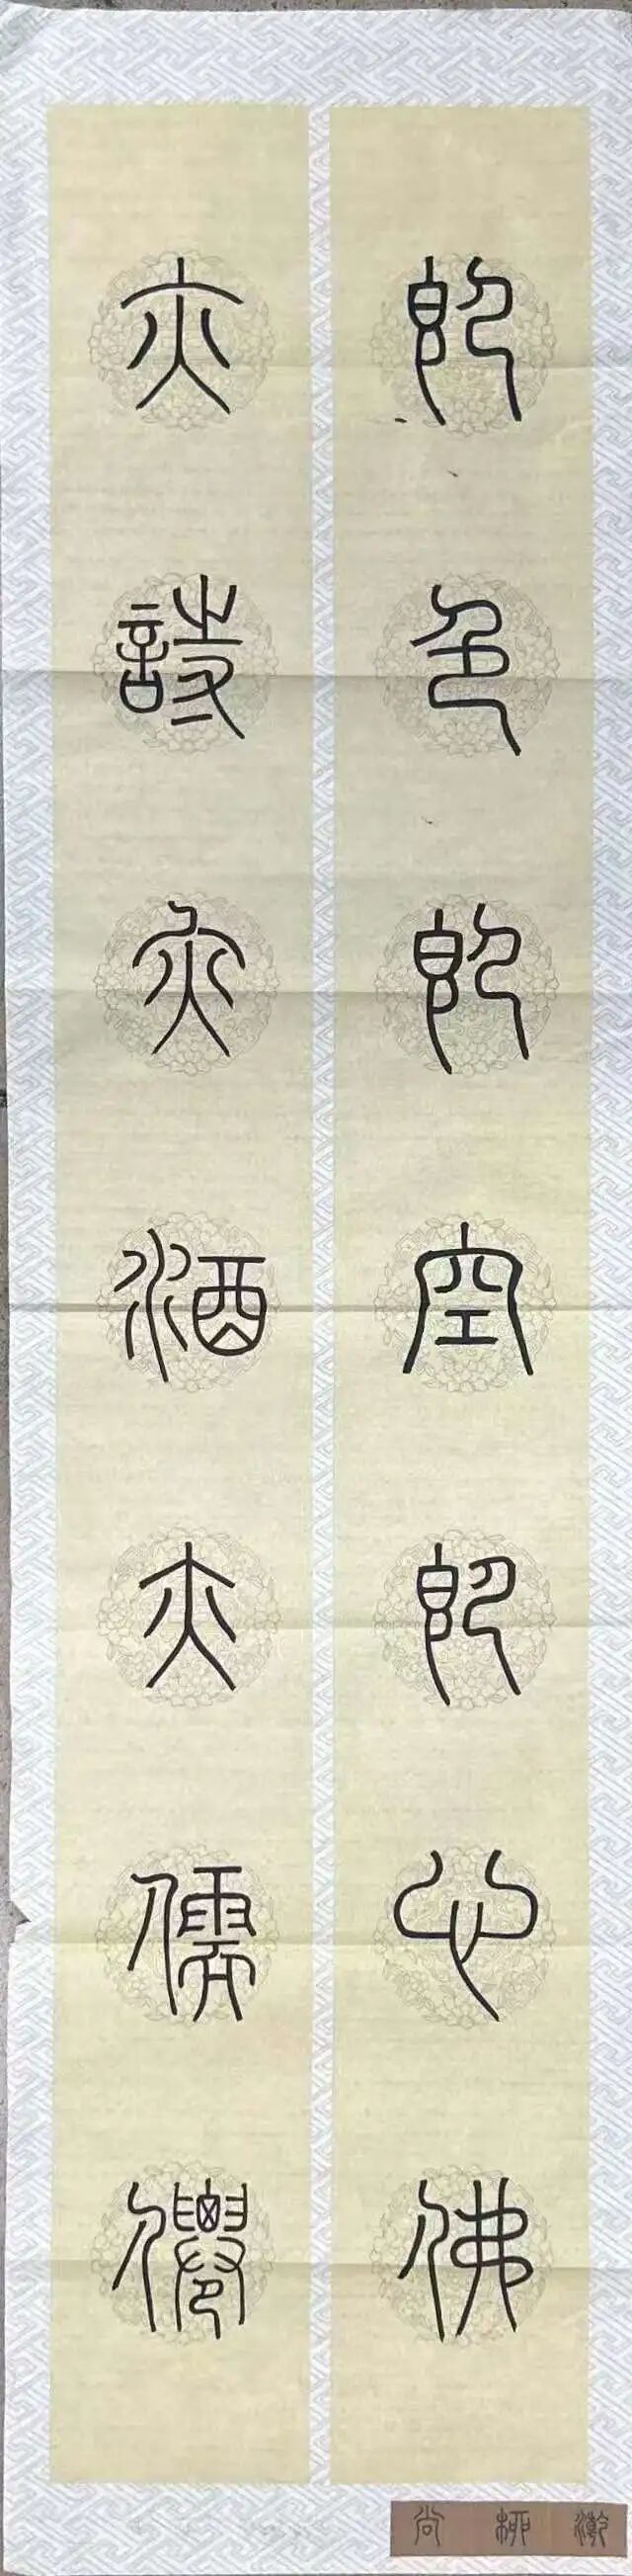 即色即空即心佛
亦詩亦酒亦儒僊